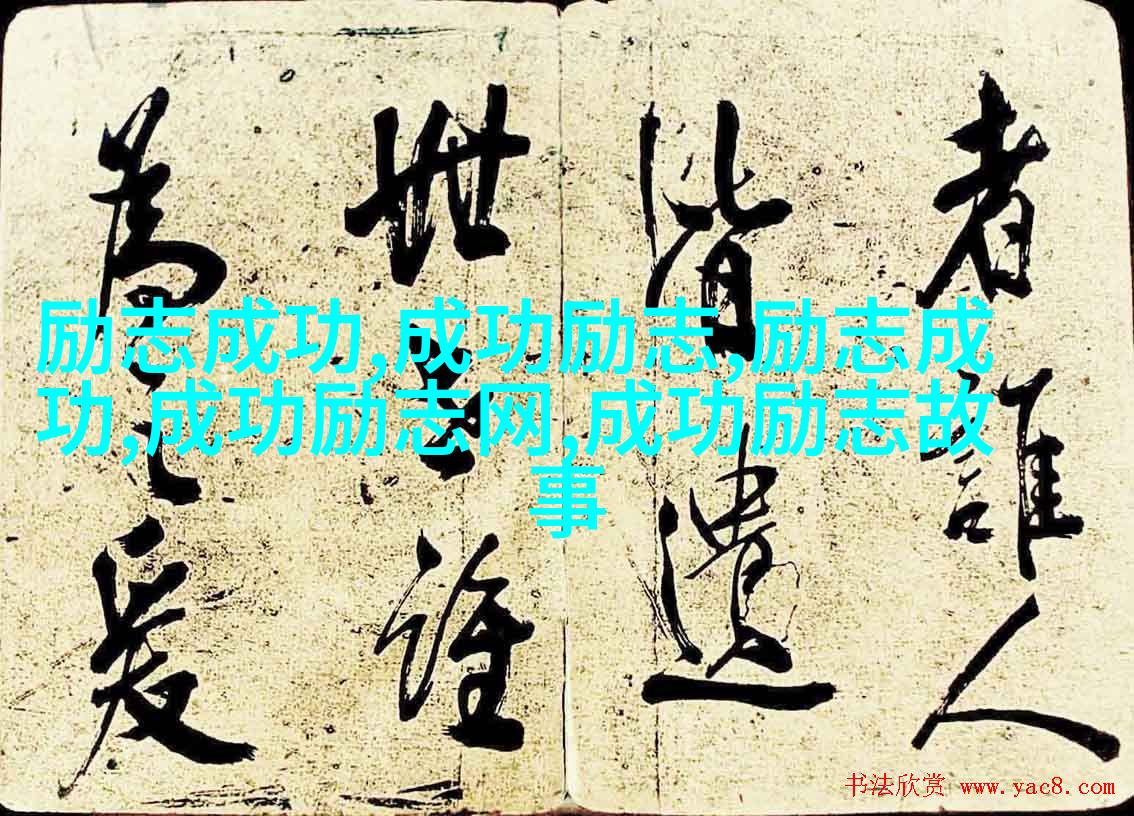 者誰人
皆遺
世誰
為之
励志成功,成功励志,励志成
功,成功励志网,成功励志故
事
书法欣赏 www.yac8.com